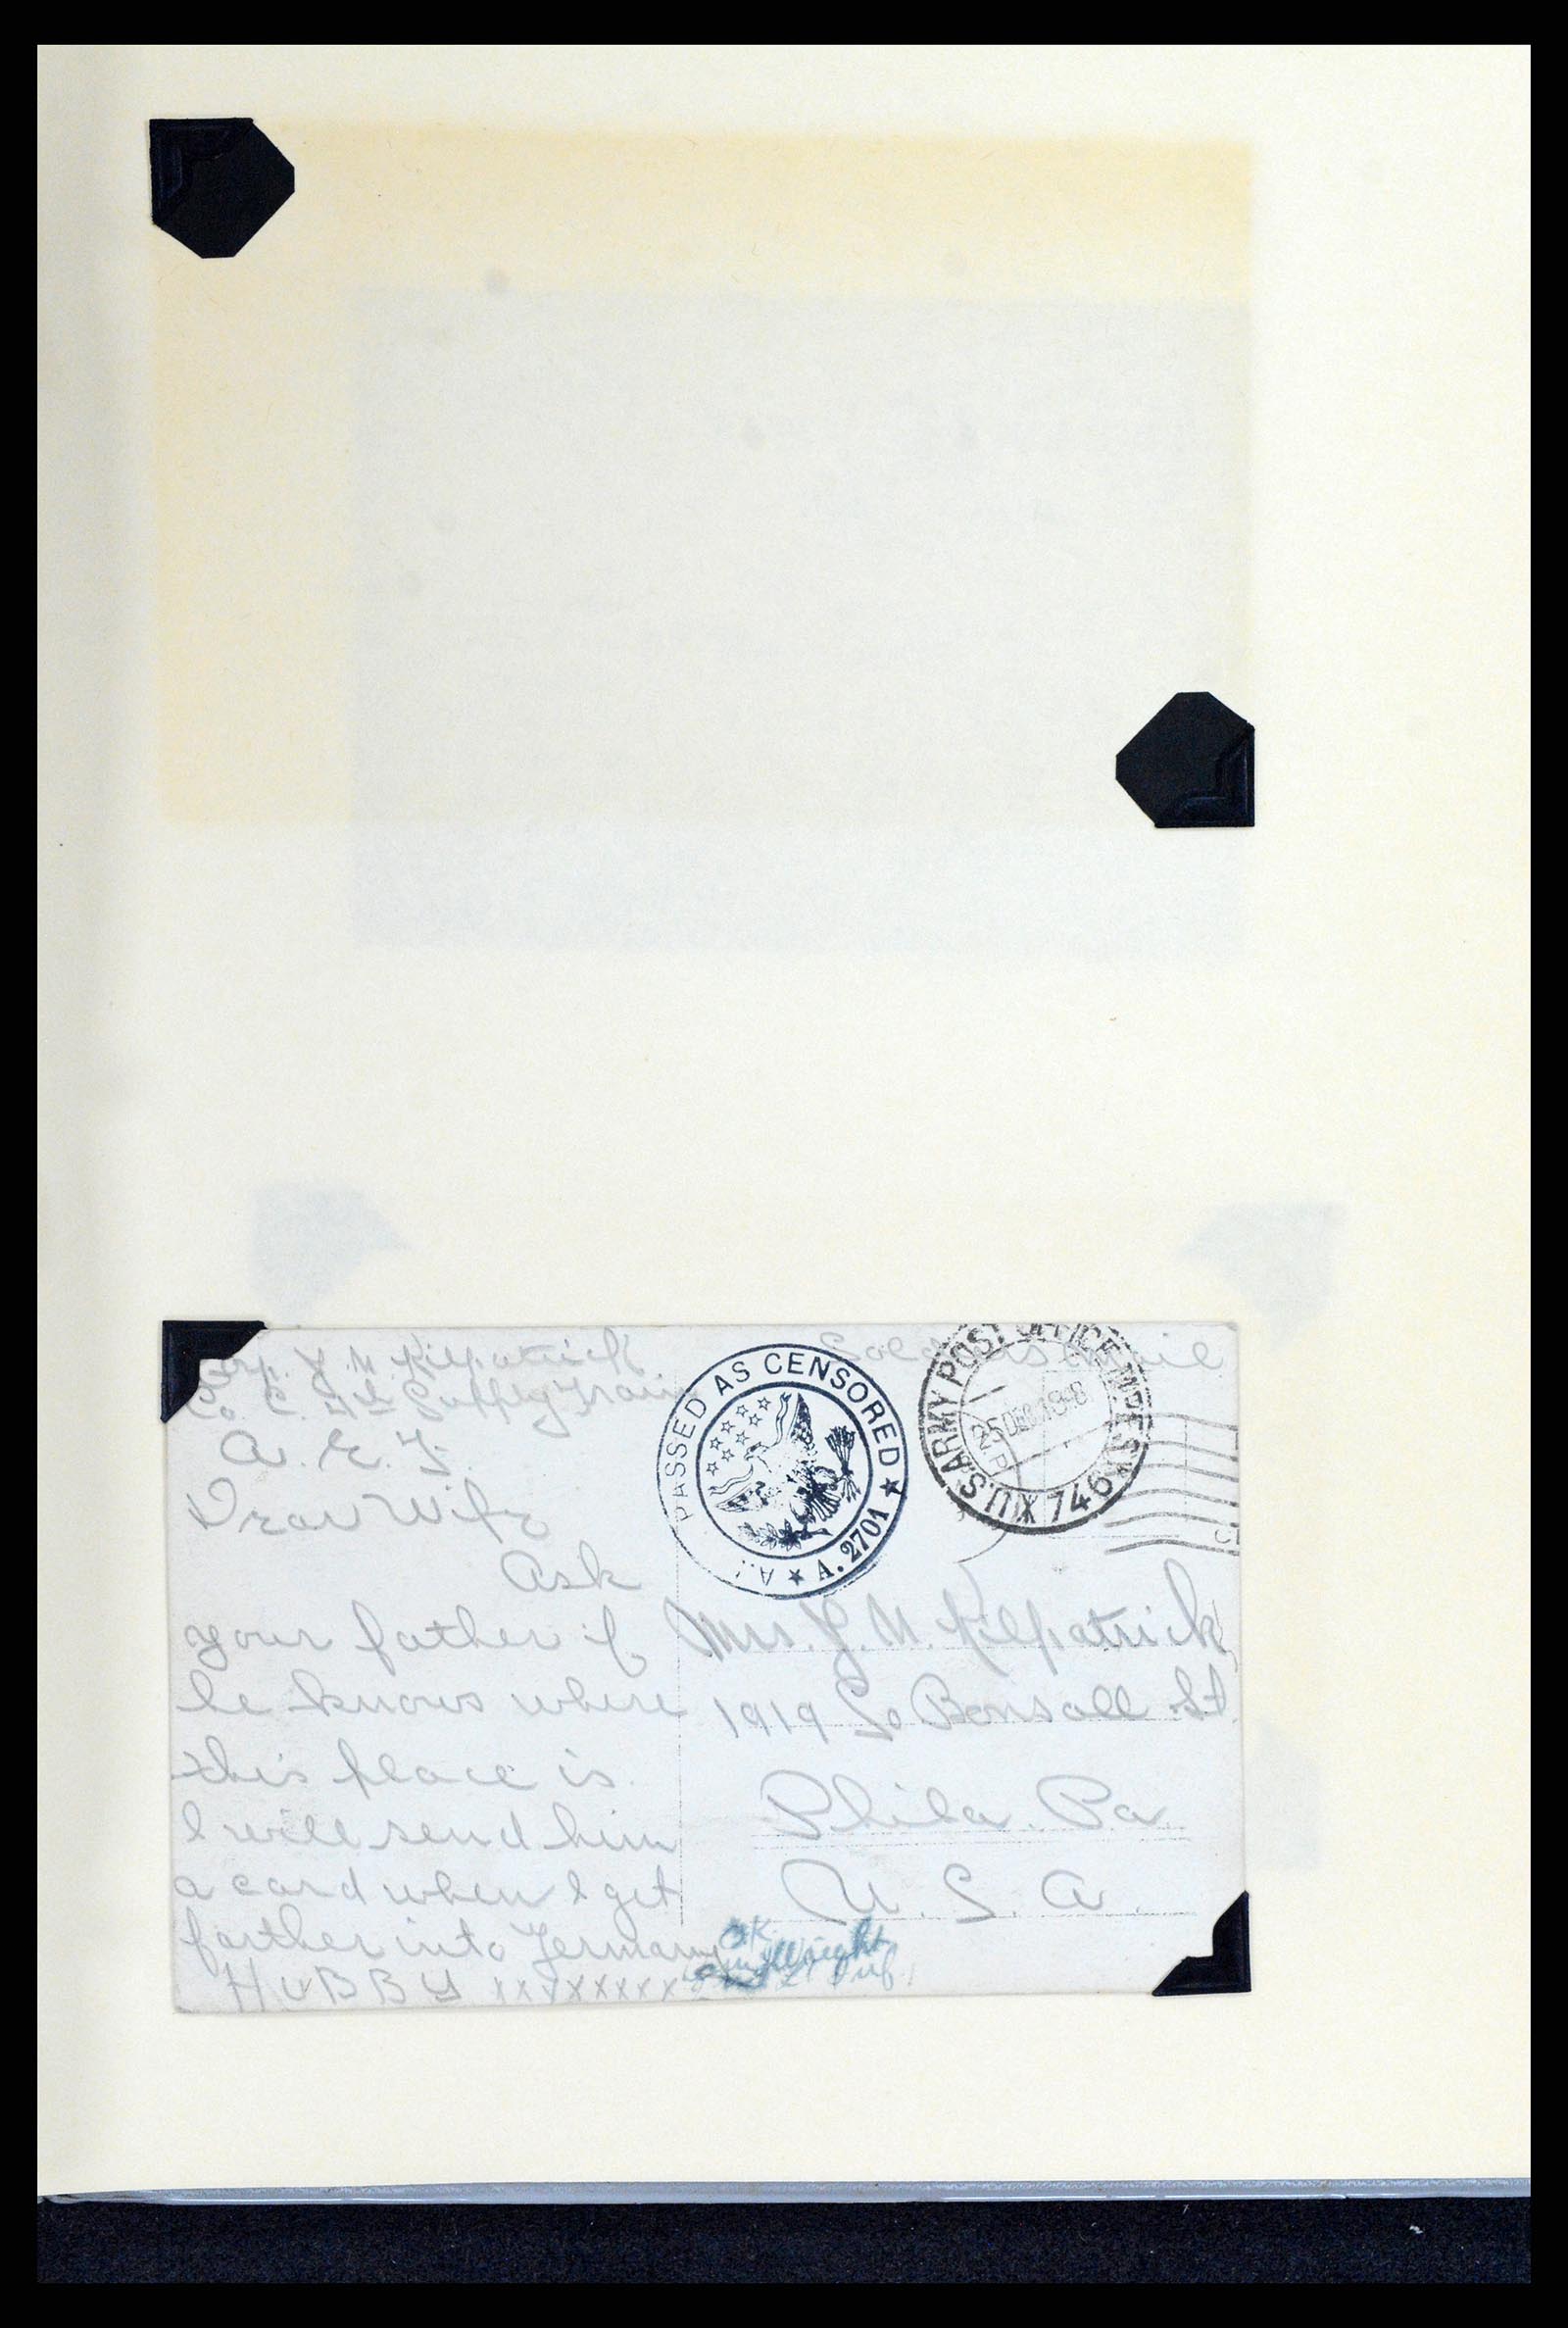 Corp. J. M. Kilpatrick
Co. C. 4th Supply Train
A. E. F.
Dear Wife
Ask
your father if
he knows where
this place is.
I will send him
a card when I get
farther into Germany
HUBBY xxxxxxxx
Soldiers Mail
PASSED AS CENSORED ★ A. 2701 ★
U.S. ARMY POST OFFICE M.P.E.S.
25 DEC
746
Mrs. J. M. Kilpatrick
1919 So Bonsall St
Phila. Pa.
U. S. A.
OK
Wright